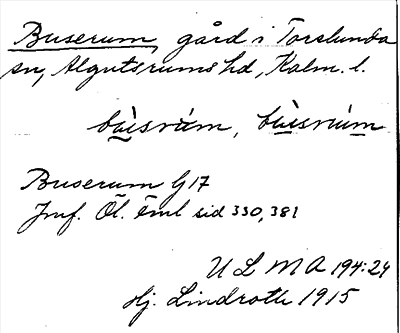 Buserum, gård i Torslunda
sn, Algutsrums hd, Kalm. l.
bu̲̇̀srúm, bu̲̇̀srúm
Buserum G 17
Jmf. Öl. fml sid 330, 381
U L M A 194:24
Hj. Lindroth 1915